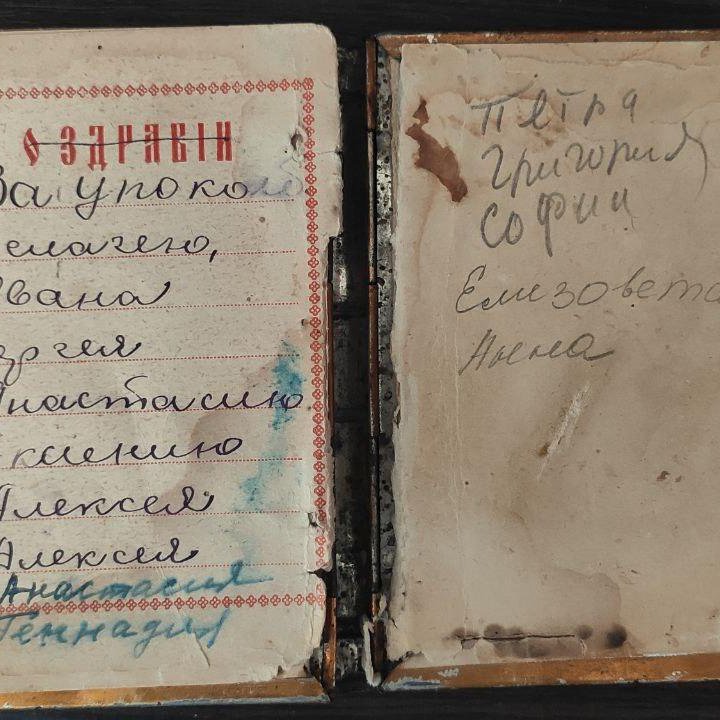 О ЗДРАВІИ
За упокой
елагею,
Ивана
ергея
Анастасию
ксению
Алексея
Алексея
Анастасия
Геннадия
Петра
Григория
Софии
Елизовета
Анна